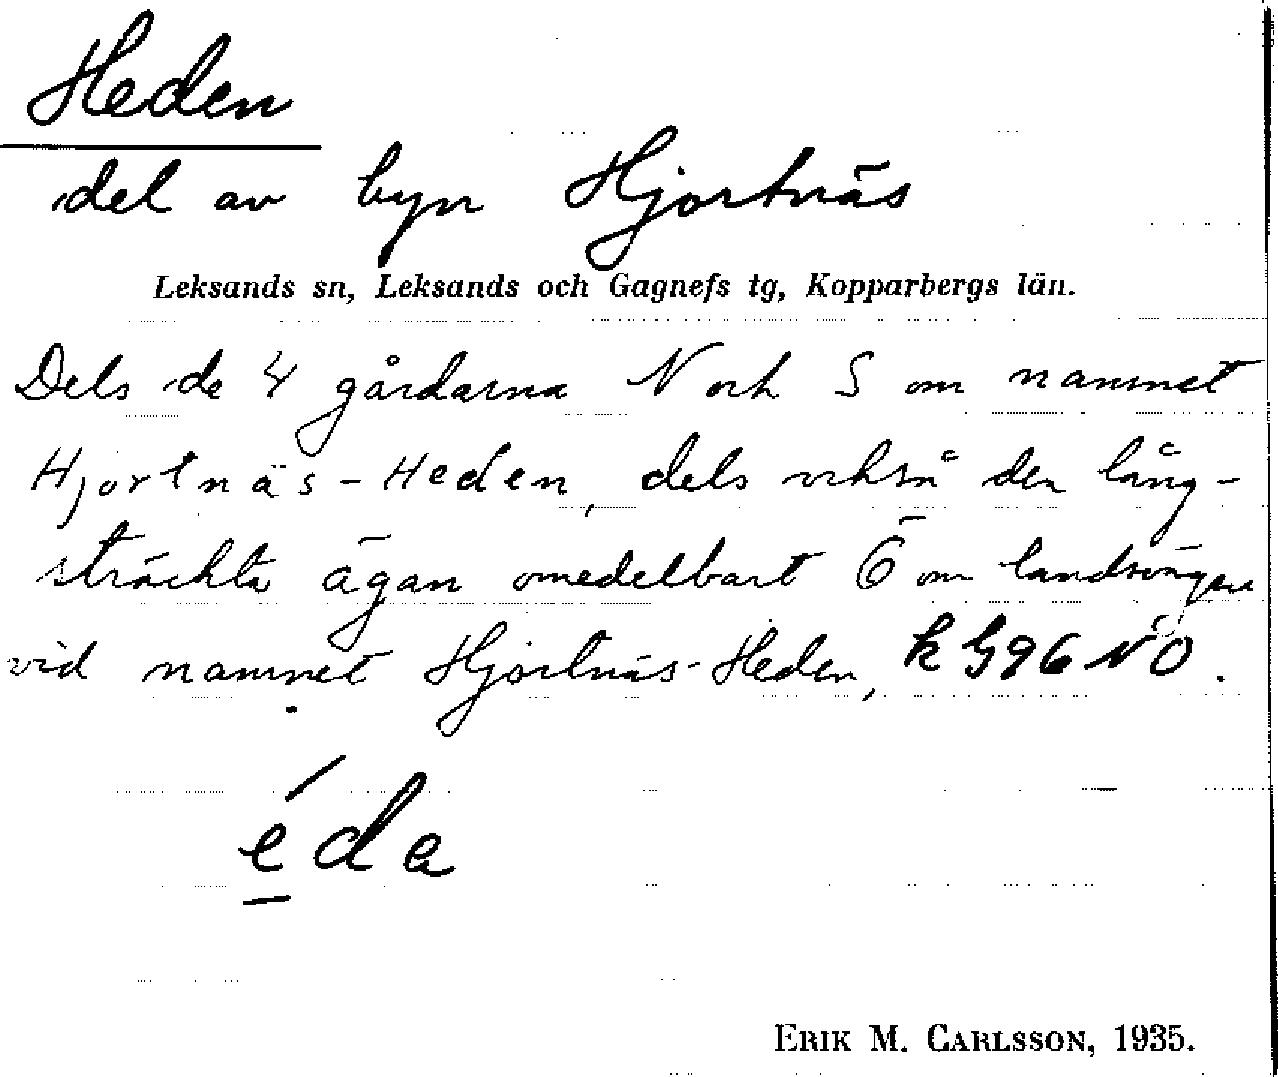 Heden
del av byn Hjortnäs
Leksands sn, Leksands och Gagnefs tg, Kopparbergs län.
Dels de 4 gårdarna N och S om namnet
Hjortnäs-Heden, dels också den lång-
sträckta ägan omedelbart Ö om landsvägen
vid namnet Hjortnäs-Heden, k G96 NÖ.
éda
ERIK M. CARLSSON, 1935.